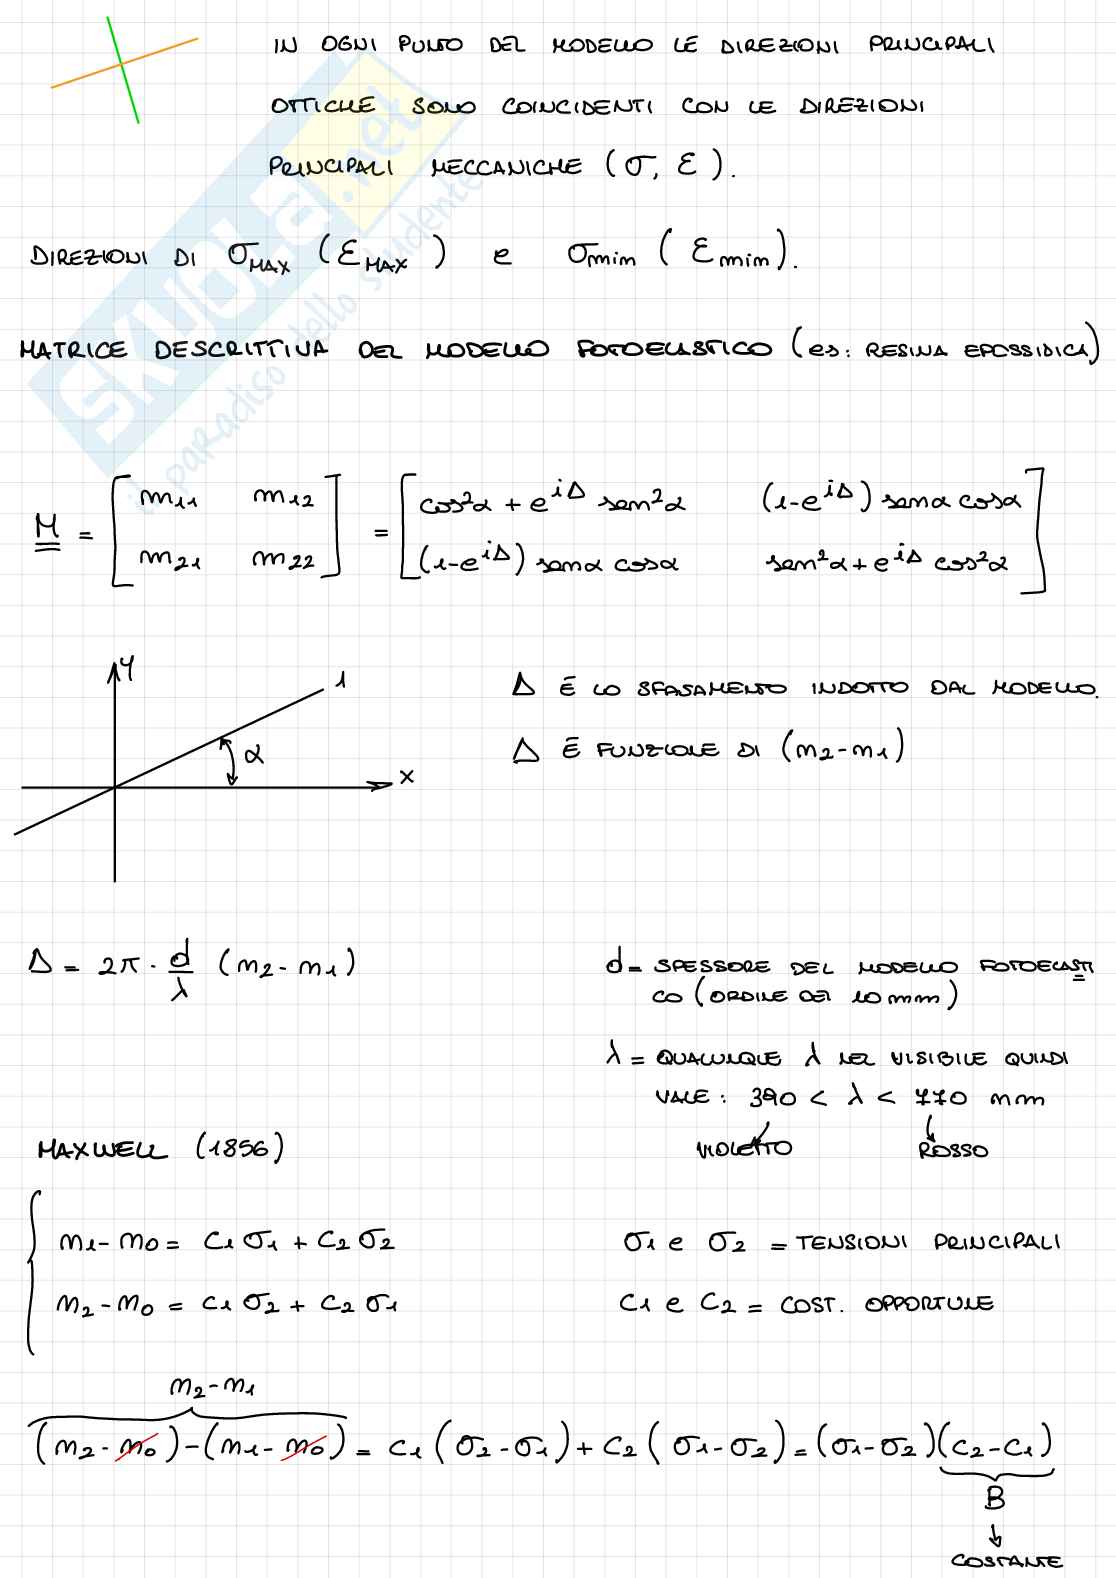 IN OGNI PUNTO DEL MODELLO LE DIREZIONI PRINCIPALI
OTTICHE SONO COINCIDENTI CON LE DIREZIONI
PRINCIPALI MECCANICHE (σ, ε).
DIREZIONI DI σMAX (εMAX) e σmin (εmin).
MATRICE DESCRITTIVA DEL MODELLO FOTOELASTICO (es: RESINA EPOSSIDICA)
M = [m11 m12; m21 m22] = [cos²α + e^{iΔ} sen²α (1-e^{iΔ}) senα cosα; (1-e^{iΔ}) senα cosα sen²α + e^{iΔ} cos²α]
y
1
α
x
Δ È LO SFASAMENTO INDOTTO DAL MODELLO.
Δ È FUNZIONE DI (n2-n1)
Δ = 2π · d/λ (n2-n1)
d = SPESSORE DEL MODELLO FOTOELASTI
CO (ORDINE DEI 10 mm)
λ = QUALUNQUE λ NEL VISIBILE QUINDI
VALE: 390 < λ < 770 nm
VIOLETTO ROSSO
MAXWELL (1856)
n1-n0 = C1 σ1 + C2 σ2
σ1 e σ2 = TENSIONI PRINCIPALI
n2-n0 = C1 σ2 + C2 σ1
C1 e C2 = COST. OPPORTUNE
n2-n1
(n2-n0)-(n1-n0) = C1(σ2-σ1)+C2(σ1-σ2)=(σ1-σ2)(C2-C1)
B
COSTANTE
SKUOLA.net
il paradiso dello studente